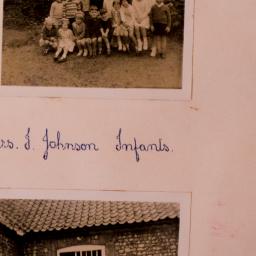 rs. J. Johnson Infants.